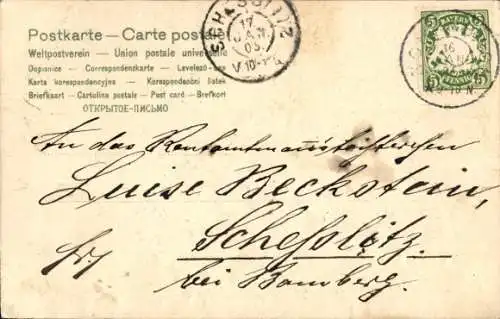 Postkarte – Carte postale
Weltpostverein – Union postale universelle
Dopisnice – Correspondenzkarte – Levelező-lap
Karta korespondencyjna – Korespondenční lístek
Briefkaart – Cartolina postale – Post card – Brefkort
ОТКРЫТОЕ-ПИСЬМО
SCHESSLITZ
17
JAN
03
V 10-
5 BAYERN 5
16
An das
Luise Beckstein,
Scheßlitz.
bei Bamberg.